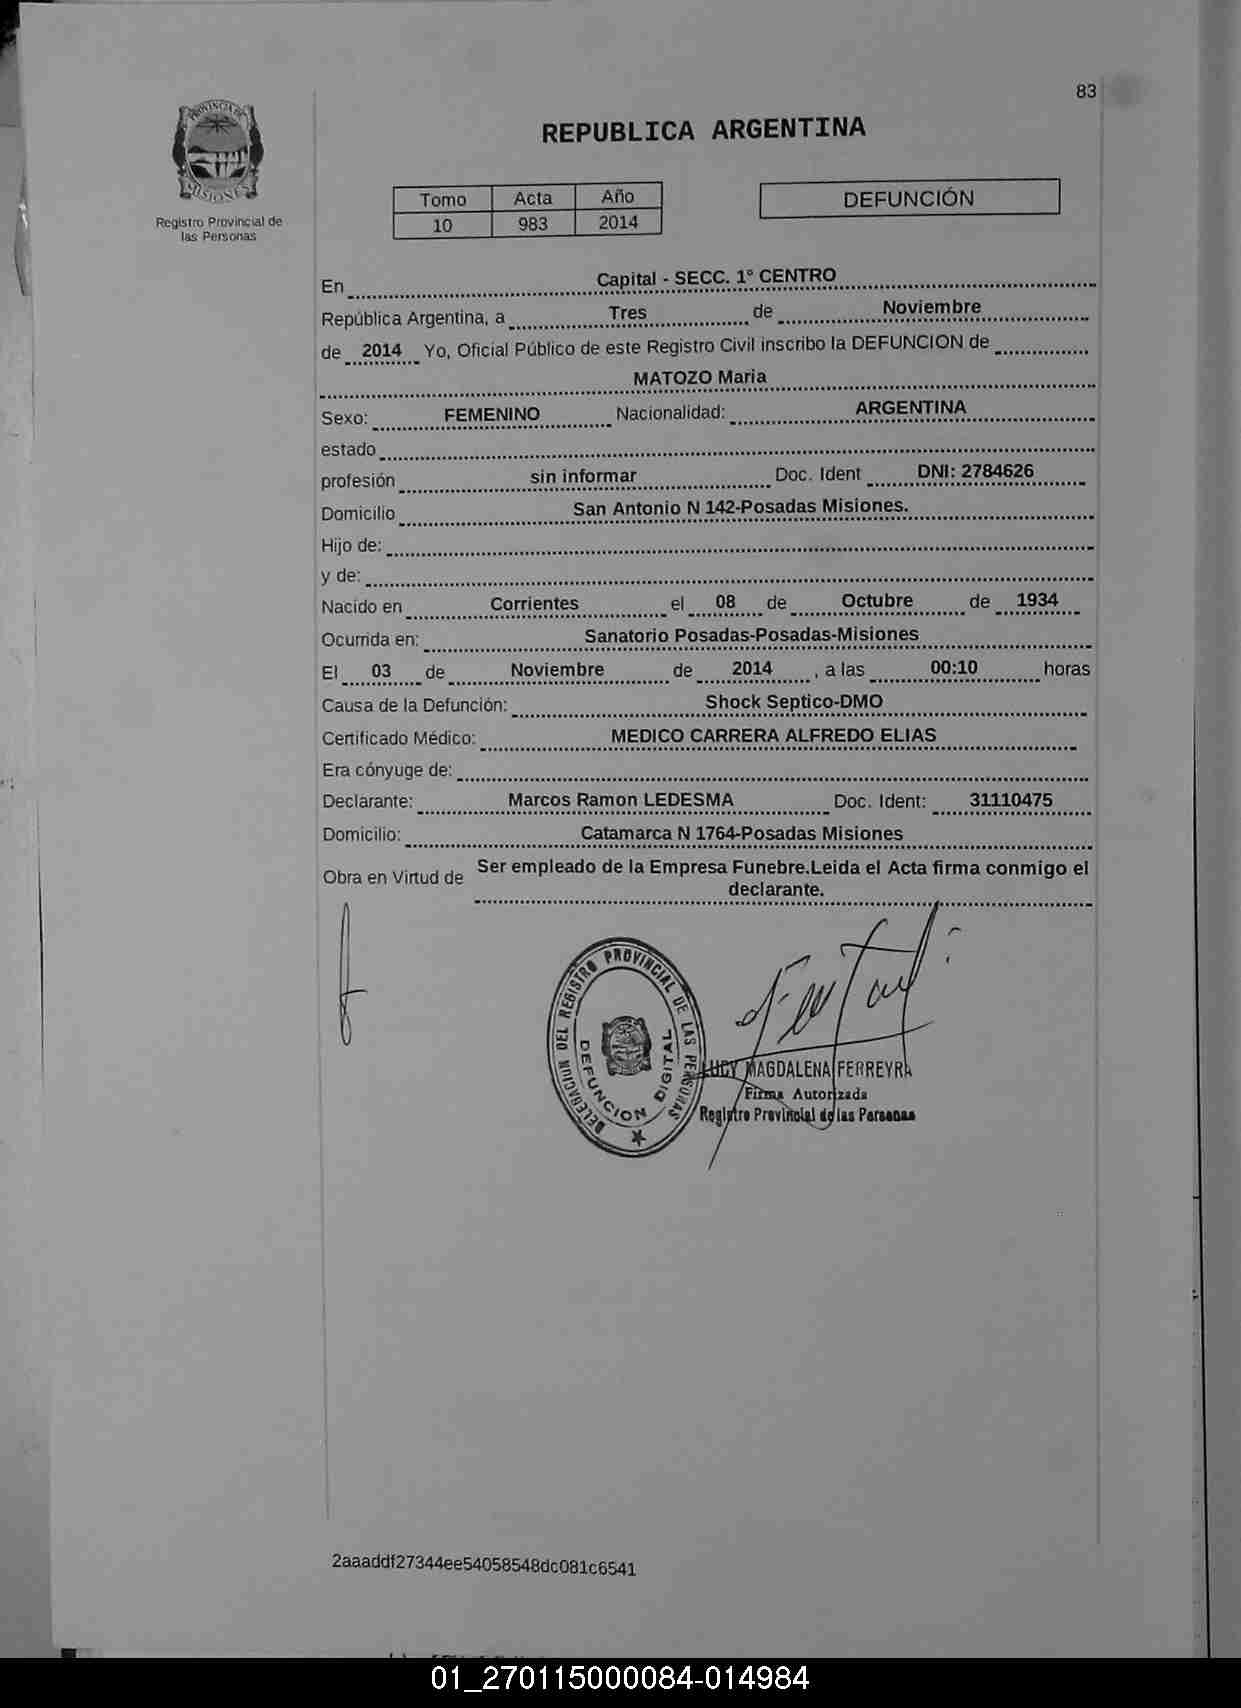 83
PROVINCIA DE
MISIONES
Registro Provincial de
las Personas
REPUBLICA ARGENTINA
Tomo Acta Año
10 983 2014
DEFUNCIÓN
En Capital - SECC. 1° CENTRO
República Argentina, a Tres de Noviembre
de 2014 Yo, Oficial Público de este Registro Civil inscribo la DEFUNCION de
MATOZO Maria
Sexo: FEMENINO Nacionalidad: ARGENTINA
estado
profesión sin informar Doc. Ident DNI: 2784626
Domicilio San Antonio N 142-Posadas Misiones.
Hijo de:
y de:
Nacido en Corrientes el 08 de Octubre de 1934
Ocurrida en: Sanatorio Posadas-Posadas-Misiones
El 03 de Noviembre de 2014 , a las 00:10 horas
Causa de la Defunción: Shock Septico-DMO
Certificado Médico: MEDICO CARRERA ALFREDO ELIAS
Era cónyuge de:
Declarante: Marcos Ramon LEDESMA Doc. Ident: 31110475
Domicilio: Catamarca N 1764-Posadas Misiones
Obra en Virtud de Ser empleado de la Empresa Funebre.Leida el Acta firma conmigo el
declarante.
DELEGACION DEL REGISTRO PROVINCIAL DE LAS PERSONAS
DEFUNCION DIGITAL
LUCY MAGDALENA FERREYRA
Firma Autorizada
Registro Provincial de las Personas
2aaaddf27344ee54058548dc081c6541
01_270115000084-014984